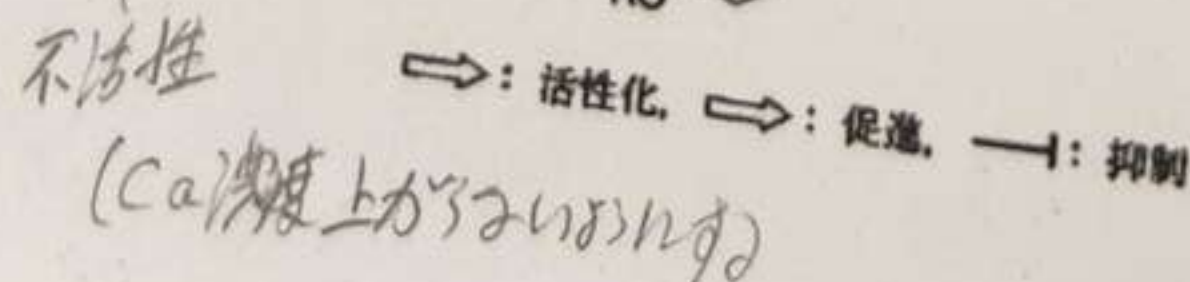 不活性
⇨: 活性化, ⇨: 促進, ⊣: 抑制
(Ca濃度上がらないようにする)